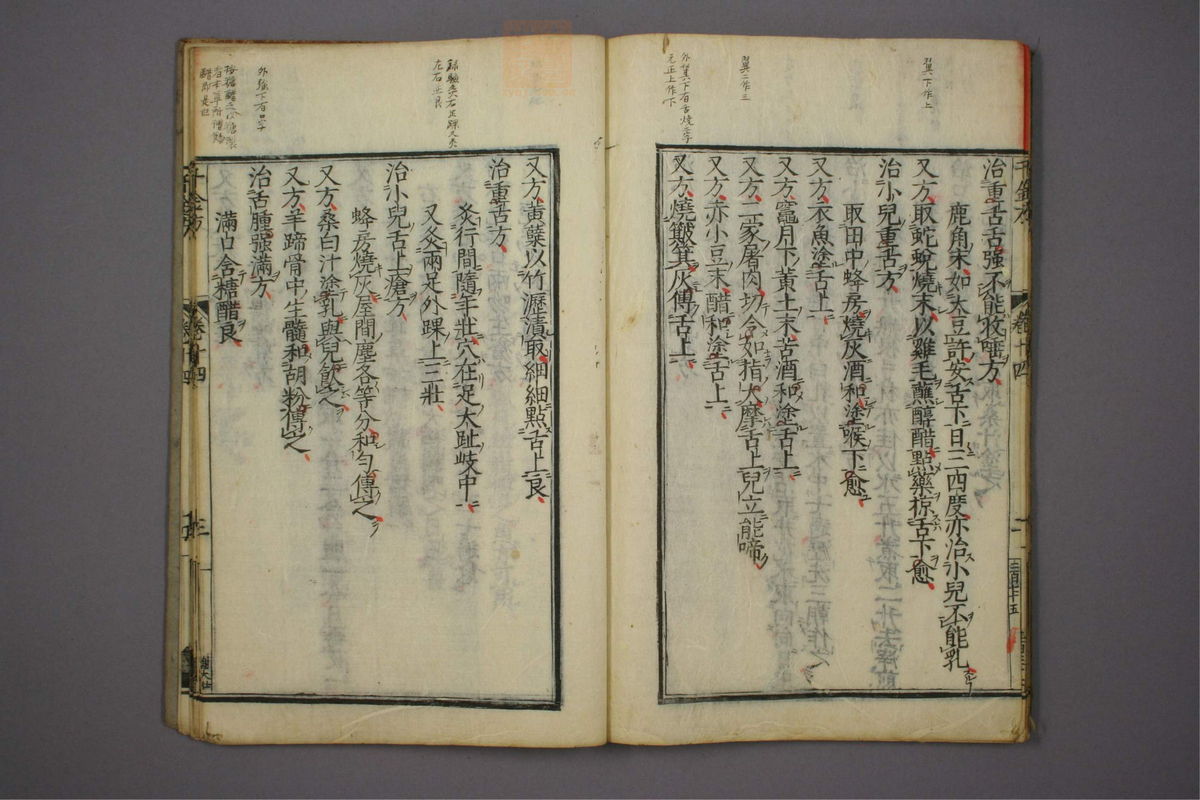 治重舌舌强不能收唾方
鹿角末如大豆許安舌下日三四度亦治小兒不能乳
又方取蛇蛻燒末以雞毛蘸醇醋點藥掠舌下愈
治小兒重舌方
取田中蜂房燒灰酒和塗喉下愈
又方衣魚塗舌上
又方竈月下黃土末苦酒和塗舌上
又方二家屠肉切令如指大摩舌上兒立能啼
又方赤小豆末醋和塗舌上
又方燒簸箕灰傅舌上
又方黃蘗以竹瀝漬取細細點舌上良
治重舌方
灸行間隨年壯穴在足大趾歧中
又灸兩足外踝上三壯
治小兒舌上瘡方
蜂房燒灰屋間塵各等分和勻傅之
又方桑白汁塗乳與兒飲之
又方羊蹄骨中生髓和胡粉傅之
治舌腫强滿方
滿口含糖醋良
翼下作上
翼二作三
卷十四